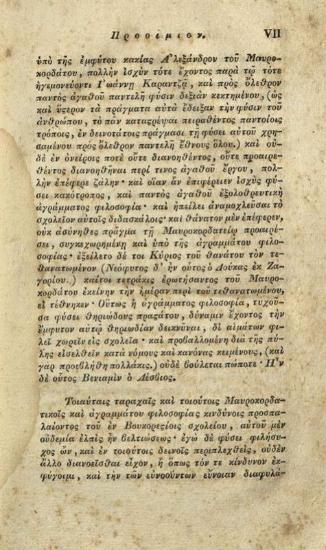 Προοίμιον. VII
ὑπὸ τῆς ἐμφύτου κακίας Ἀλεξάνδρου τοῦ Μαυρο-
κορδάτου, πολλὴν ἰσχὺν τότε ἔχοντος παρὰ τῷ τότε
ἡγεμονεύοντι Ἰωάννῃ Καραντζᾷ, καὶ πρὸς ὄλεθρον
παντὸς ἀγαθοῦ παντελῆ φύσιν δεξιὰν κεκτημένου, (ὡς
καὶ ὕστερον τὰ πράγματα αὐτὰ ἔδειξαν τὴν φύσιν τοῦ
ἀνθρώπου, τὸ πᾶν καταστρέψαι πειραθέντος παντοίοις
τρόποις, ἐν δεινοτάτοις πράγμασι τῇ φύσει αὐτοῦ χρη-
σαμένου πρὸς ὄλεθρον παντελῆ ἔθνους ὅλου.) καὶ οὐ-
δὲ ἐν ὀνείροις ποτὲ οὔτε διανοηθέντος, οὔτε προαιρε-
θέντος διανοηθῆναι περί τινος ἀγαθοῦ ἔργου, πολ-
λὴν ἐπέφερε ζάλην· καὶ οἵαν ἂν ἐπιφέρειεν ἰσχὺς φύσει
κακότροπος, καὶ παντὸς ἀγαθοῦ ἐξολοθρευτικὴ
ἀγράμματος φιλοσοφία· καὶ ἠπείλει ἀναμοχλεῦσαι τὸ
σχολεῖον αὐτοῖς διδασκάλοις· καὶ θάνατον μὲν ἐπέφερεν,
οὐκ ἀσύνηθες πρᾶγμα τῇ Μαυροκορδατείῳ προαιρέ-
σει, συγκεχωρημένῃ καὶ ὑπὸ τῆς ἀγραμμάτου φιλο-
σοφίας· ἐξείλετο δέ τοι Κύριος τοῦ θανάτου τὸν τε-
θανατωμένον (Νεόφυτος δ' ἦν οὗτος ὁ Δούκας ἐκ Ζα-
γορίου.) καίτοι τετράκις ἐρωτήσαντος τοῦ Μαυρο-
κορδάτου ἐκείνην τὴν ἡμέραν περὶ τοῦ τεθανατωμένου,
εἰ τέθνηκεν· Οὕτως ἡ ἀγράμματος φιλοσοφία, τυχοῦ-
σα φύσει θηριώδους προστάτου, δύναμιν ἔχοντος τὴν
ἔμφυτον αὐτῷ θηριωδίαν δεικνύναι, δι' αἱμάτων φι-
λεῖ χωρεῖν εἰς σχολεῖα· καὶ προβαλλομένη διὰ τῆς πύ-
λης εἰσελθεῖν κατὰ νόμους καὶ κανόνας κειμένους, (καὶ
γὰρ προεβλήθη πολλάκις.) οὐδὲ βούλεται πώποτε· Ἦν
δὲ οὗτος Βενιαμὶν ὁ Λέσβιος.
Τοιαύταις ταραχαῖς καὶ τοιούτοις Μαυροκορδα-
τικοῖς καὶ ἀγραμμάτου φιλοσοφίας κινδύνοις προσπα-
λαίοντος τοῦ ἐν Βουκορεστίοις σχολείου, αὐτοῦ μὲν
οὐδεμία ἐλπὶς ἦν βελτιώσεως· ἐγὼ δὲ φύσει φιλήσυ-
χος ὤν, καὶ ἐν τοιούτοις δεινοῖς περιπλεχθείς, οὐδὲν
ἄλλο διανοεῖσθαι εἶχον, ἢ ὅπως τόν τε κίνδυνον ἐκ-
φύγοιμι, καὶ τὴν τῶν εὐνοούντων εὔνοιαν διαφυλά-